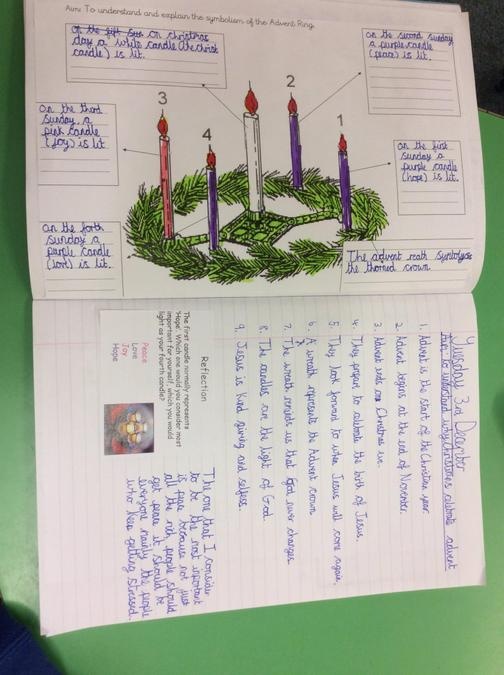 Aim: To understand and explain the symbolism of the Advent Ring.
on the fift sun on christmas
day a white candle (the christ
candle) is lit.
on the second sunday
a purple candle
(peace) is lit.
2
3
on the third
sunday a
pink candle
(Joy) is lit
4
1
on the first
sunday a
purple candle
(hope) is lit.
on the forth
sunday a
purple candle
(love) is lit.
The advent reath symbolyses
the thorned crown.
Tuesday 3rd December
Aim: To understand why christians celebrate advent
1. Advent is the start of the Christian year.
2. Advent begins at the end of November
3. Advent ends on Christmas eve.
4. They prepare to celebrate the birth of Jesus.
5. They look forward to when Jesus will come again.
6. A wreath represents the Advent crown
7. The wreath reminds us that God never changes.
8. The candles are the light of God.
9. Jesus is kind giving and selfless.
Reflection
The first candle normally represents
'Hope'. Which one would you consider most
important for yourself, which you would
light as your fourth candle?
Peace
Love
Joy
Hope
The one that I consider
to be the most important
is peace because not just
all the rich people should
get peace it should be
everyone mainly the people
who keep getting stressed.